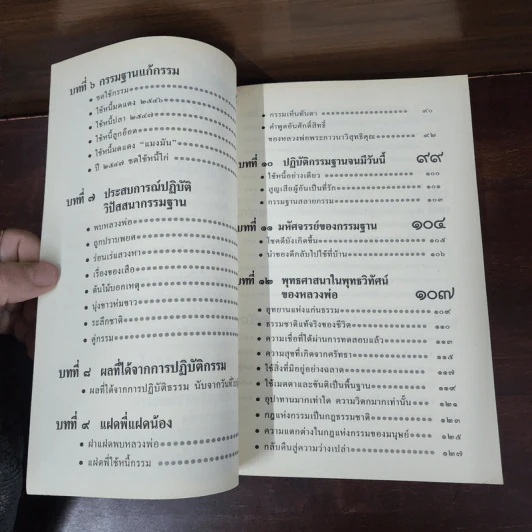 บทที่ ๖ กรรมฐานแก้กรรม
• ชดใช้กรรม
• ใช้หนี้มดแดง ๒๕๔๖
• ใช้หนี้ปลา ๒๕๔๗
• ใช้หนี้ลูกอ๊อด
• ใช้หนี้มดแดง "แมงมัน"
• ปี ๒๕๔๗ ชดใช้หนี้ไก่
บทที่ ๗ ประสบการณ์ปฏิบัติ
วิปัสสนากรรมฐาน
• พบหลวงพ่อ
• ถูกปราบพยศ
• ร่อนเร่แสวงหา
• เรื่องของเสือ
• ต้นไม้บอกเหตุ
• นุ่งขาวห่มขาว
• ระลึกชาติ
• สู่กรรม
บทที่ ๘ ผลที่ได้จากการปฏิบัติกรรม
• ผลที่ได้จากการปฏิบัติธรรม นับจากวันที่
บทที่ ๙ แฝดพี่แฝดน้อง
• ฝาแฝดพบหลวงพ่อ
• แฝดพี่ใช้หนี้กรรม
• กรรมเห็นทันตา ๙๐
• คำพูดอันศักดิ์สิทธิ์
ของหลวงพ่อพระภาวนาวิสุทธิคุณ ๙๒
บทที่ ๑๐ ปฏิบัติกรรมฐานจนมีวันนี้ ๙๙
• ใช้หนี้อย่างเดียว ๑๐๐
• สูญเสียผู้อันเป็นที่รัก ๑๐๑
• กรรมฐานสลายกรรม ๑๐๓
บทที่ ๑๑ มหัศจรรย์ของกรรมฐาน ๑๐๔
• โชคดีบังเกิดขึ้น ๑๐๕
• นำของดีกลับไปใช้ที่บ้าน ๑๐๖
บทที่ ๑๒ พุทธศาสนาในพุทธวิทัศน์
ของหลวงพ่อ ๑๐๗
• อุทยานแห่งแก่นธรรม ๑๐๙
• ธรรมชาติแท้จริงของชีวิต ๑๑๐
• ความเชื่อที่ได้ผ่านการทดสอบแล้ว ๑๑๓
• ความสุขที่เกิดจากศรัทธา ๑๑๕
• ใช้สิ่งที่มีอยู่อย่างฉลาด ๑๑๗
• ใช้เมตตาและขันติเป็นพื้นฐาน ๑๑๙
• อุปาทานมากเท่าใด ความวิตกมากเท่านั้น ๑๒๑
• กฎแห่งกรรมเป็นกฎธรรมชาติ ๑๒๓
• ความแตกต่างในกฎแห่งกรรมของมนุษย์ ๑๒๕
• กลับคืนสู่ความว่างเปล่า ๑๒๗